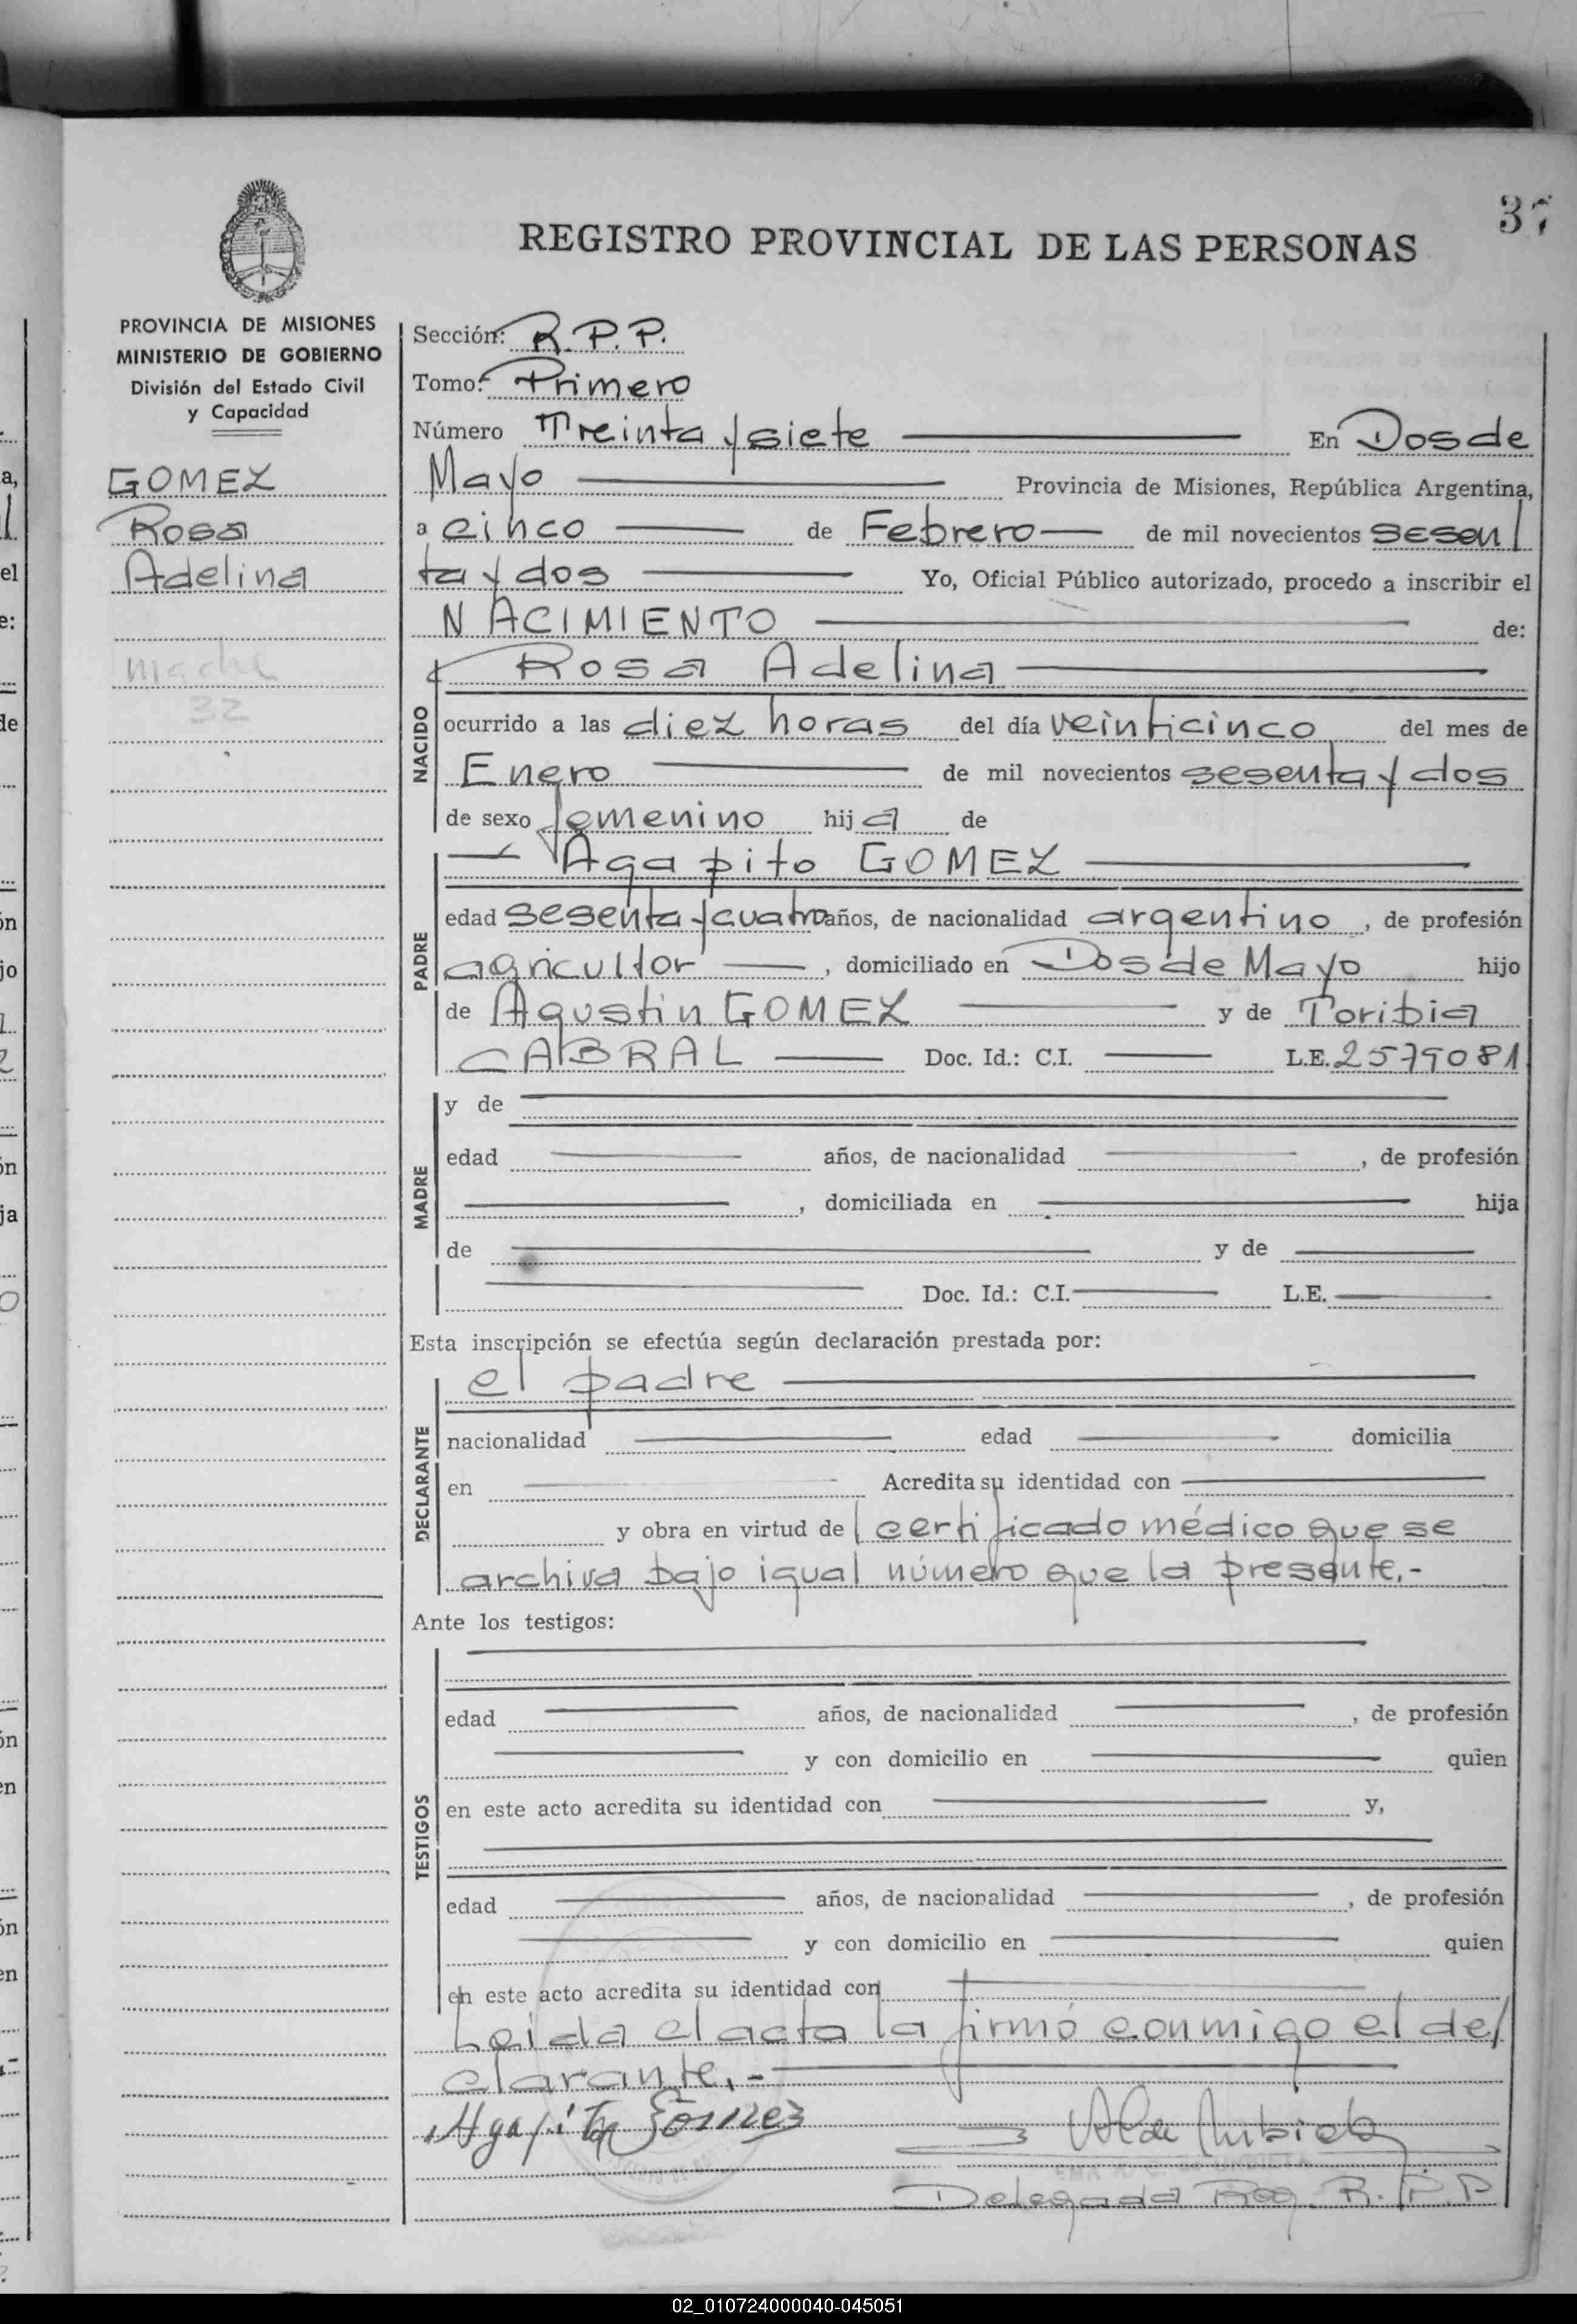 37
REGISTRO PROVINCIAL DE LAS PERSONAS
PROVINCIA DE MISIONES
MINISTERIO DE GOBIERNO
División del Estado Civil
y Capacidad
GOMEZ
Rosa
Adelina
madre
32
Sección: R.P.P.
Tomo: Primero
Número Treinta y siete En Dos de
Mayo Provincia de Misiones, República Argentina,
a cinco de Febrero de mil novecientos sesen
ta y dos Yo, Oficial Público autorizado, procedo a inscribir el
NACIMIENTO de:
Rosa Adelina
NACIDO
ocurrido a las diez horas del día veinticinco del mes de
Enero de mil novecientos sesenta y dos
de sexo femenino hija de
Agapito GOMEZ
PADRE
edad sesenta y cuatro años, de nacionalidad argentino, de profesión
agricultor, domiciliado en Dos de Mayo hijo
de Agustin GOMEZ y de Toribia
CABRAL Doc. Id.: C.I. L.E. 2579081
MADRE
y de
edad años, de nacionalidad , de profesión
, domiciliada en hija
de y de
Doc. Id.: C.I. L.E.
Esta inscripción se efectúa según declaración prestada por:
el padre
DECLARANTE
nacionalidad edad domicilia
en Acredita su identidad con
y obra en virtud de certificado médico que se
archiva bajo igual número que la presente.-
Ante los testigos:
TESTIGOS
edad años, de nacionalidad , de profesión
y con domicilio en quien
en este acto acredita su identidad con y,
edad años, de nacionalidad , de profesión
y con domicilio en quien
en este acto acredita su identidad con
Leida el acta la firmó conmigo el de
clarante.-
Agapito Gomez
Delegada Reg. R.P.P
02_010724000040-045051